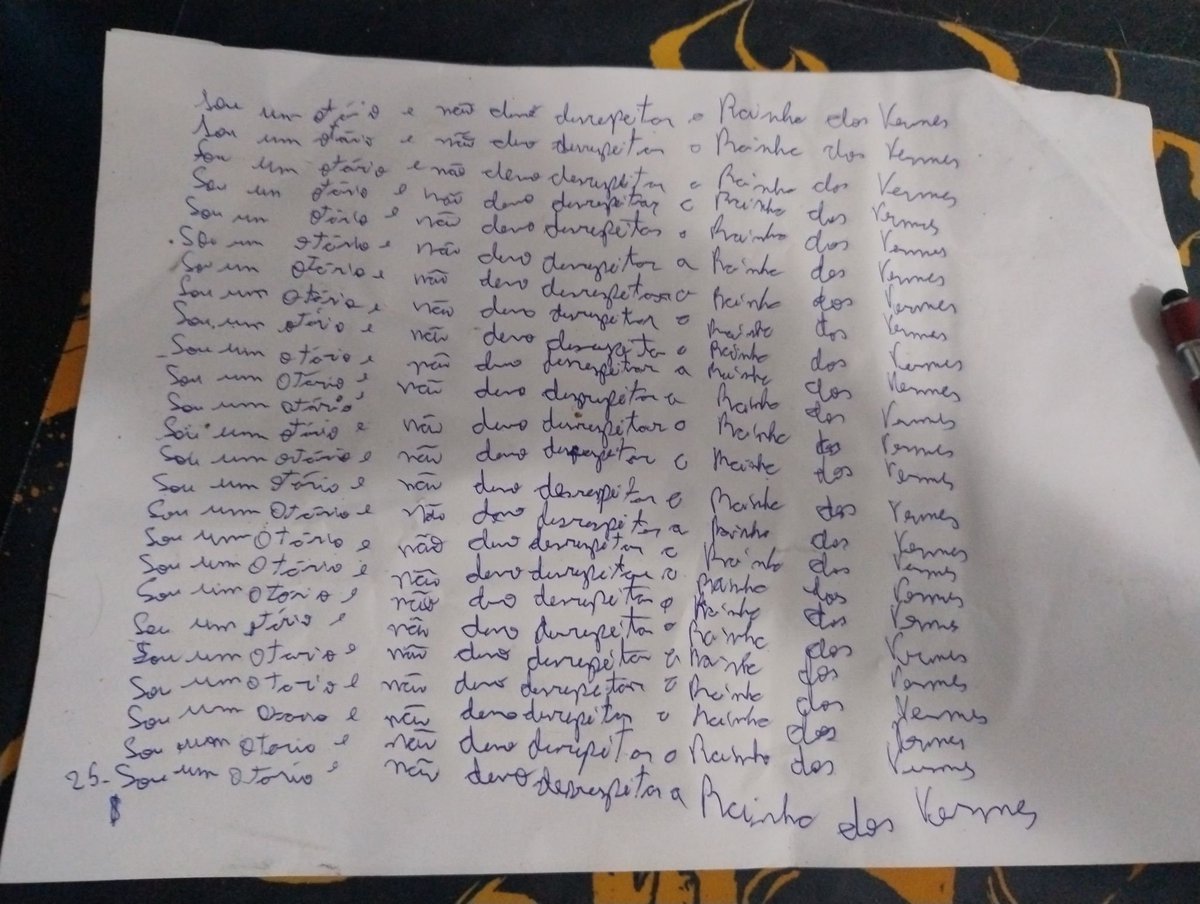 Sou um otário e não devo desrespeitar a Rainha dos Vermes
Sou um otário e não devo desrespeitar a Rainha dos Vermes
Sou um otário e não devo desrespeitar a Rainha dos Vermes
Sou um otário e não devo desrespeitar a Rainha dos Vermes
Sou um otário e não devo desrespeitar a Rainha dos Vermes
Sou um otário e não devo desrespeitar a Rainha dos Vermes
Sou um otário e não devo desrespeitar a Rainha dos Vermes
Sou um otário e não devo desrespeitar a Rainha dos Vermes
Sou um otário e não devo desrespeitar a Rainha dos Vermes
Sou um otário e não devo desrespeitar a Rainha dos Vermes
Sou um Otário e não devo desrespeitar a Rainha dos Vermes
Sou um otário e não devo desrespeitar a Rainha dos Vermes
Sou um otário e não devo desrespeitar a Rainha dos Vermes
Sou um otário e não devo desrespeitar a Rainha dos Vermes
Sou um Otário e não devo desrespeitar a Rainha dos Vermes
Sou um Otário e não devo desrespeitar a Rainha dos Vermes
Sou um Otário e não devo desrespeitar a Rainha dos Vermes
Sou um Otário e não devo desrespeitar a Rainha dos Vermes
Sou um otario e não devo desrespeitar a Rainha dos Vermes
Sou um otário e não devo desrespeitar a Rainha dos Vermes
Sou um Otario e não devo desrespeitar a Rainha dos Vermes
Sou um Otario e não devo desrespeitar a Rainha dos Vermes
Sou um Otario e não devo desrespeitar a Rainha dos Vermes
Sou um otario e não devo desrespeitar a Rainha dos Vermes
25- Sou um otario e não devo desrespeitar a Rainha dos Vermes